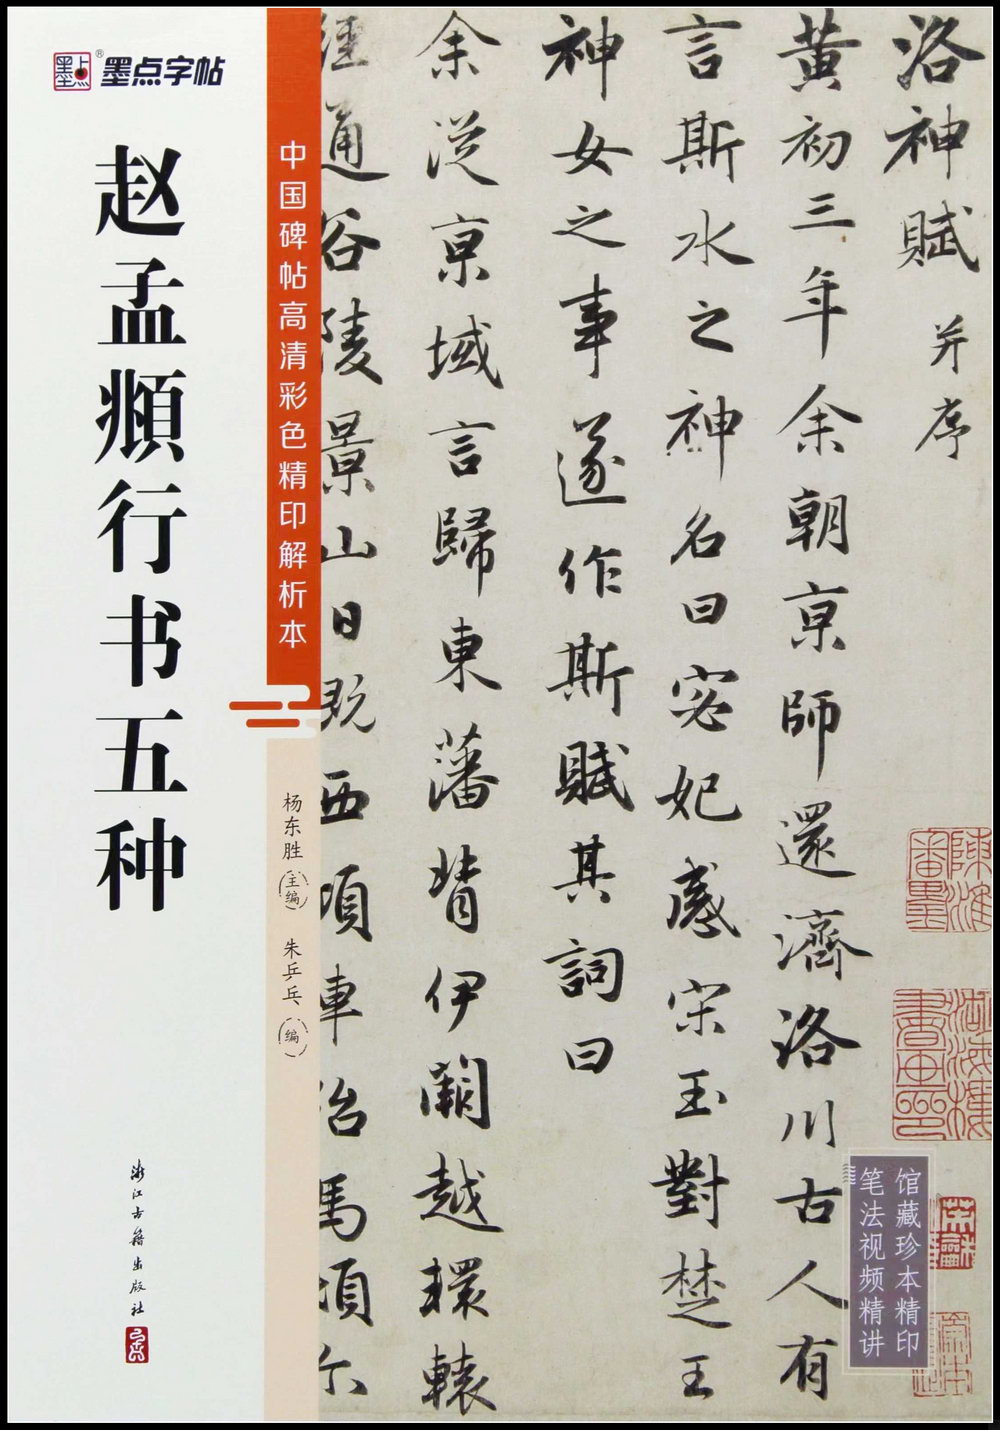 墨点字帖
赵孟頫行书五种
中国碑帖高清彩色精印解析本
杨东胜 主编 朱乒乓 编
浙江古籍出版社
洛神賦 并序
黄初三年余朝京師還濟洛川古人有
言斯水之神名曰宓妃感宋玉對楚王
神女之事遂作斯賦其詞曰
余従京域言歸東藩背伊闕越轘轅
經通谷陵景山日既西頃車殆馬煩尔
馆藏珍本精印
笔法视频精讲